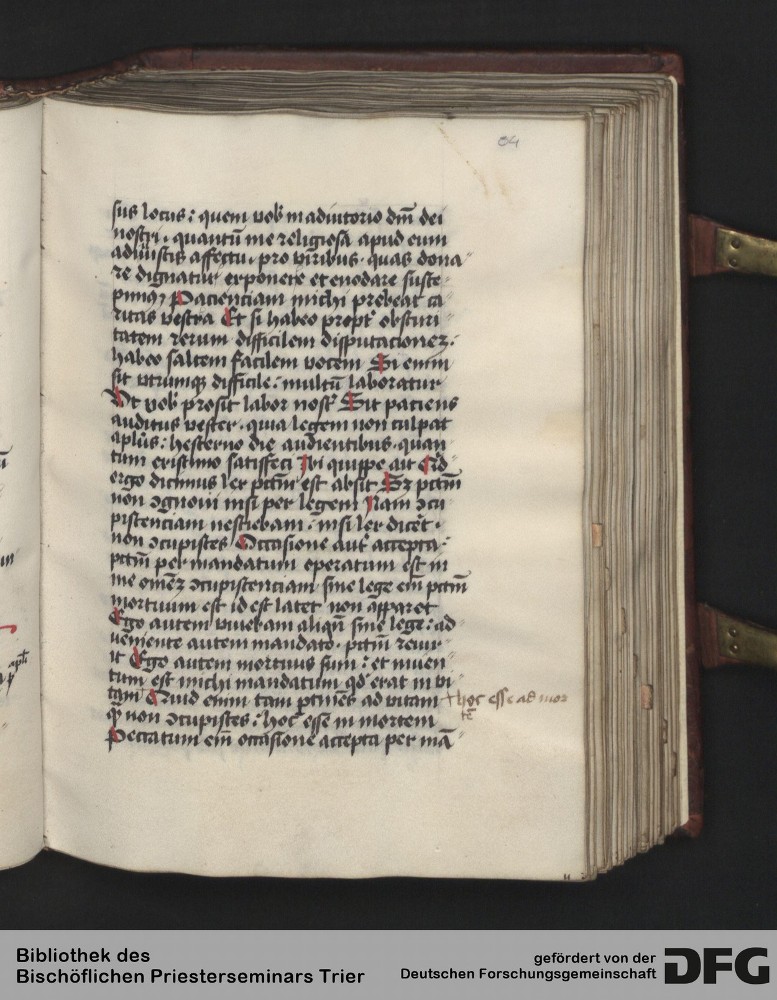 84
sus locus : quem vob in adiutorio dnī dei
nostri . quantū me religiosa apud eum
adiuistis affectu . pro viribus . quas dona
re dignatur exponere et enodare susce
pimus Pacienciam michi prebeat ca
ritas vestra Et si habeo propt obscuri
tatem rerum difficilem disputacionez .
habeo saltem facilem vocem Si enim
sit utrumqz difficile : multū laboratur
Ut vob prosit labor nost Sit paciens
auditus vester . quia legem non culpat
aplūs : hesterno die audientibus . quan
tum existimo satisfeci Ibi quippe ait Qid
ergo dicimus lex pctm est absit Sz pctm
non ɔgnoui nisi per legem Nam ɔcu
pistenciam nesciebam . nisi lex dicet .
non ɔcupistes Occasione aut accepta .
pctm per mandatum operatum est in
me omēz ɔcupistenciam sine lege em pctm
mortuum est id est latet non apparet
Ego autem viuebam aliqn sine lege : ad
ueniente autem mandato . pctm reuix
it Ego autem mortuus sum : et inuen
tum est michi mandatum qd erat in vi
tam Quid enim tam ptinet ad vitam
q̄ non ɔcupistes : hoc esse in mortem
Peccatum em occasione accepta per mā
+ hoc esse ad mor
tē
apli
Bibliothek des
Bischöflichen Priesterseminars Trier
gefördert von der
Deutschen Forschungsgemeinschaft
DFG